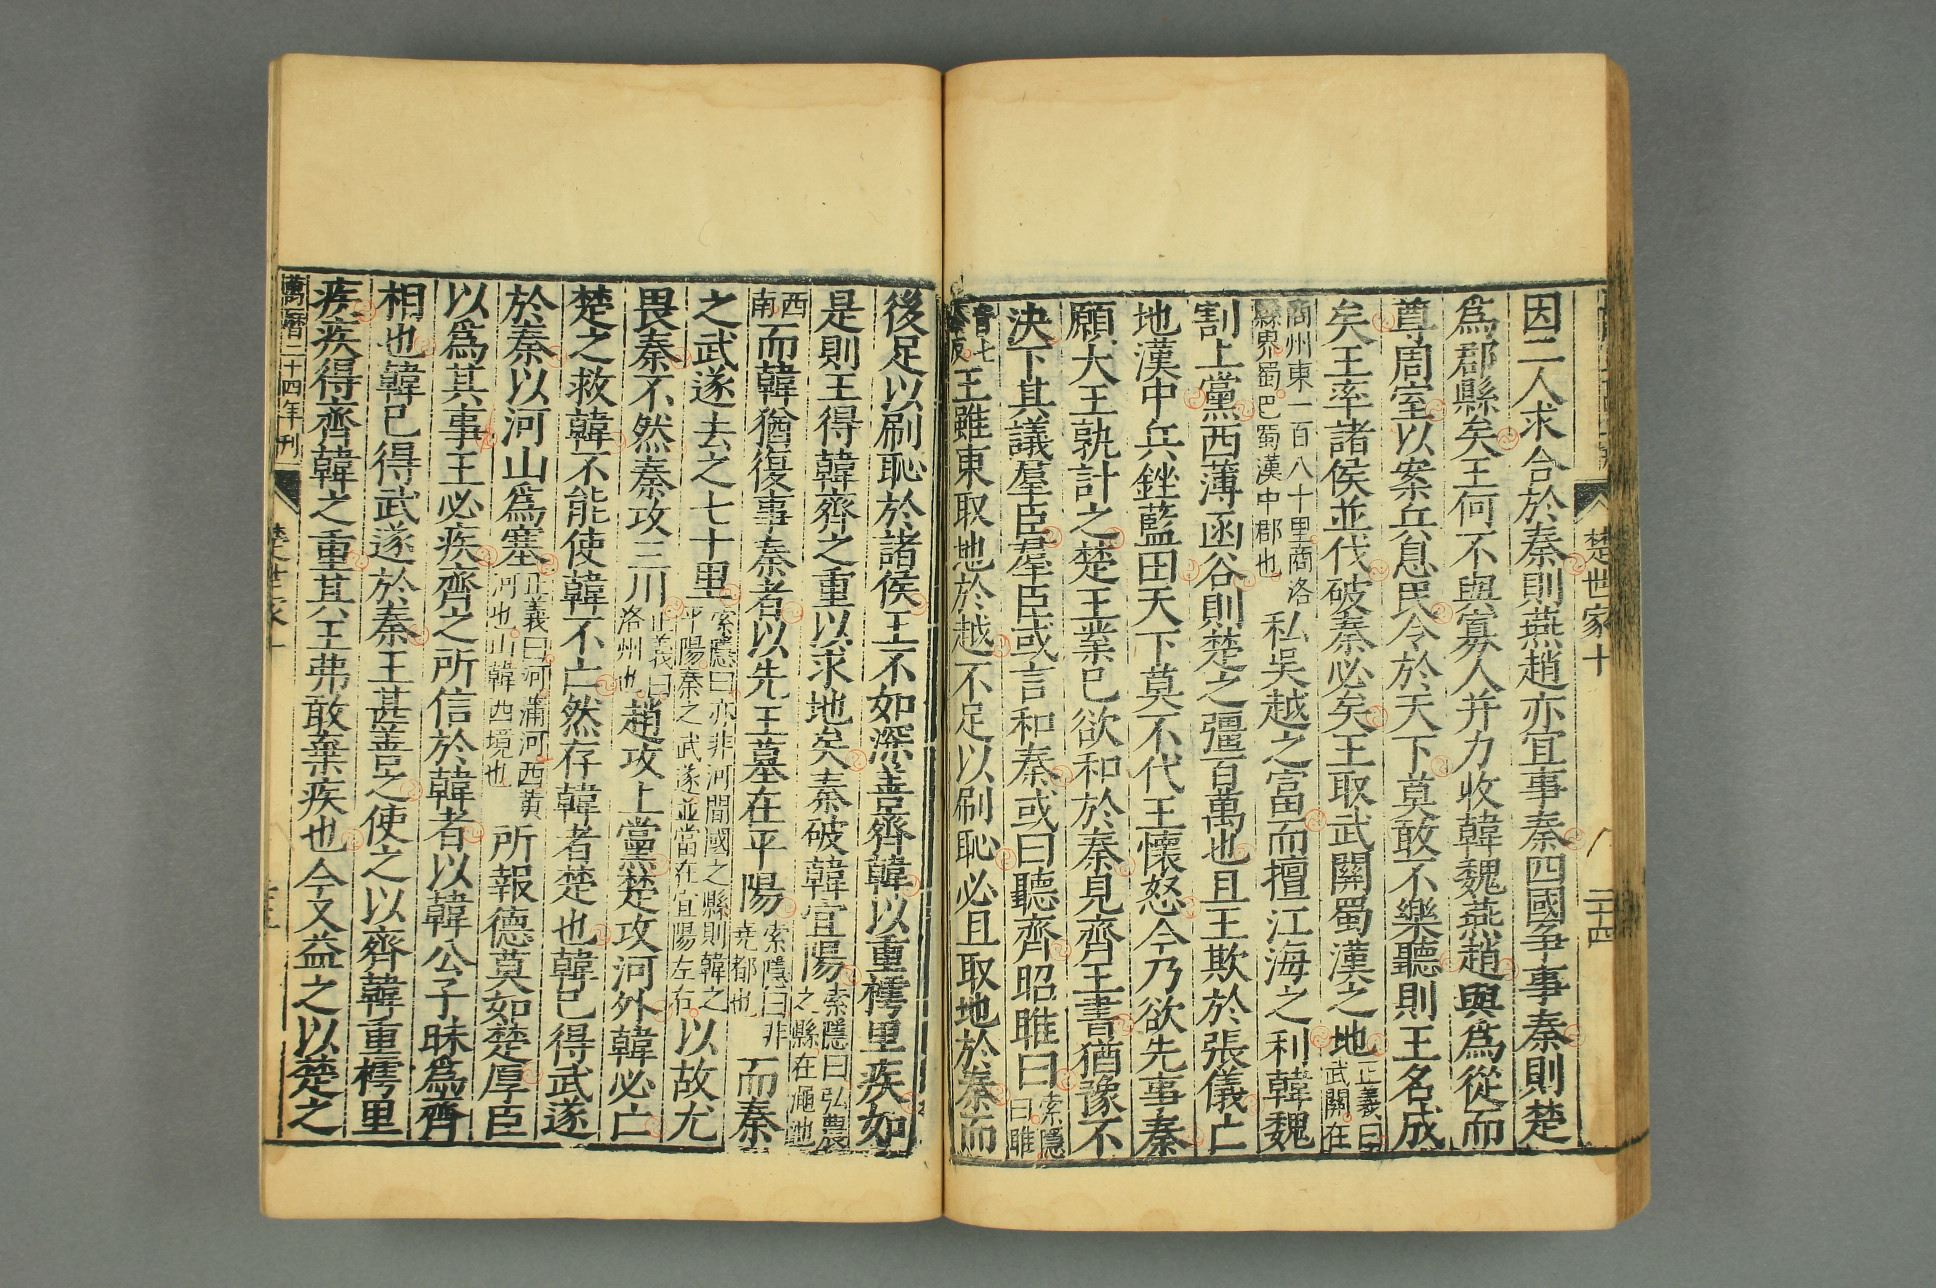 楚世家十 二十四
因二人求合於秦則燕趙亦宜事秦四國爭事秦則楚
爲郡縣矣王何不與寡人并力收韓魏燕趙與爲從而
尊周室以案兵息民令於天下莫敢不樂聽則王名成
矣王率諸侯並伐破秦必矣王取武關蜀漢之地正義曰武關在
商州東一百八十里商洛縣界蜀巴蜀漢中郡也私吳越之富而擅江海之利韓魏
割上黨西薄函谷則楚之彊百萬也且王欺於張儀亡
地漢中兵銼藍田天下莫不代王懷怒今乃欲先事秦
願大王孰計之楚王業已欲和於秦見齊王書猶豫不
決下其議羣臣羣臣或言和秦或曰聽齊昭雎曰索隱曰雎
音七餘反王雖東取地於越不足以刷恥必且取地於秦而
後足以刷恥於諸侯王不如深善齊韓以重樗里疾如
是則王得韓齊之重以求地矣秦破韓宜陽索隱曰弘農之縣在澠池
西南而韓猶復事秦者以先王墓在平陽索隱曰非堯都也而秦
之武遂去之七十里索隱曰亦非河間國之縣則韓之平陽秦之武遂並當在宜陽左右以故尤
畏秦不然秦攻三川正義曰洛州也趙攻上黨楚攻河外韓必亡
楚之救韓不能使韓不亡然存韓者楚也韓已得武遂
於秦以河山爲塞正義曰河蒲河西黃河也山韓西境也所報德莫如楚厚臣
以爲其事王必疾齊之所信於韓者以韓公子昧爲齊
相也韓已得武遂於秦王甚善之使之以齊韓重樗里
疾疾得齊韓之重其主弗敢棄疾也今又益之以楚之
萬曆二十四年刊 楚世家十